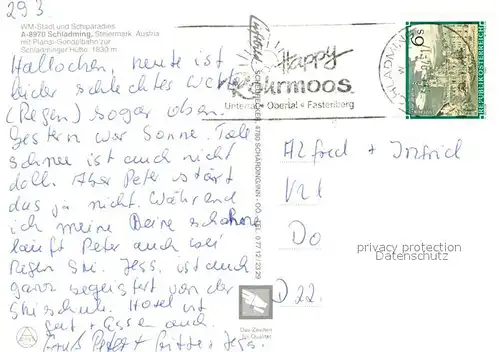 293
WM-Stadt und Schiparadies
A-8970 Schladming, Steiermark, Austria
mit Planai-Gondelbahn zur
Schladminger Hütte, 1830 m
Hallöchen, heute ist
leider schlechter Wetter
(Regen) sogar oben.
Gestern war Sonne. Tole
schnee ist auch nicht
doll. Aber Peter stört
das ja nicht. Während
ich meine Beine schone
läuft Peter auch bei
Regen Ski. Jess. ist auch
ganz begeistert von der
Skischule. Hotel ist
gut + Essen auch.
Gruß Peter + Gitte + Jess.
Happy
Rohrmoos
Untertal • Obertal • Fastenberg
SCHLADMING
S 6
REPUBLIK ÖSTERREICH
4780 SCHÄRDING/INN
TEL. 077 12 / 23 29
Alfred + Irmfried
Do
D 22.
privacy protection
Datenschutz
Das Zeichen
für Qualität